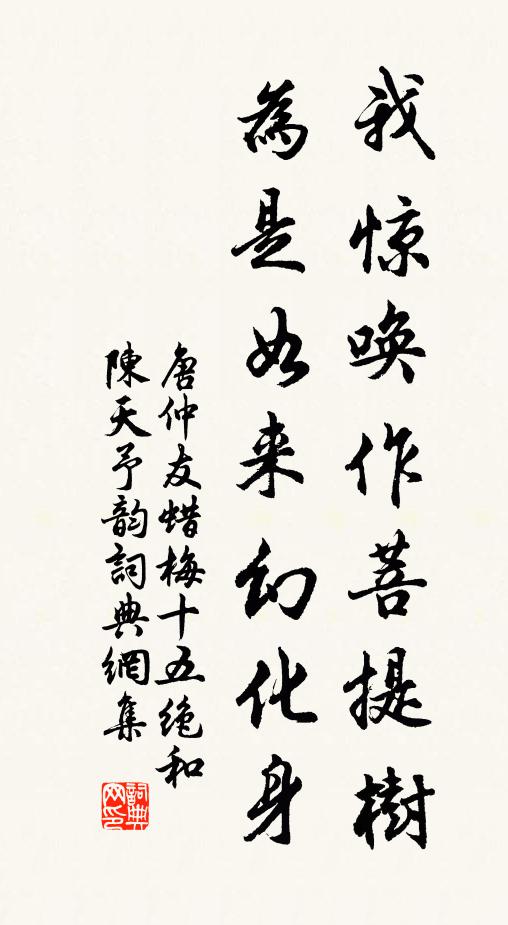 我惊唤作菩提樹
為是如来幻化身
唐仲友蜡梅十五绝和
陳天予韵詞典網集
詞典网印